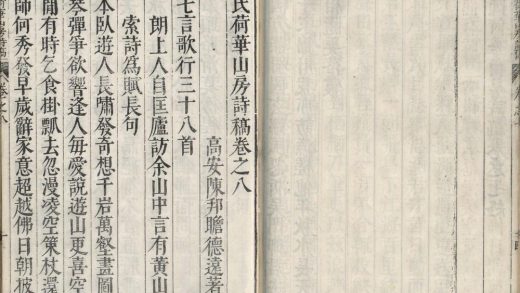 氏荷華山房詩稿卷之八
高安陳邦瞻德遠著
七言歌行三十八首
朗上人自匡廬訪余山中言有黃山
索詩為賦長句
本臥遊人長嘯發奇想千岩萬壑盡圖
琴彈爭欲響逢人每愛說遊山更喜空
閒有時乞食掛瓢去忽漫凌空策杖還
師何秀發早歲辭家意超越佛日朝披
卷之八